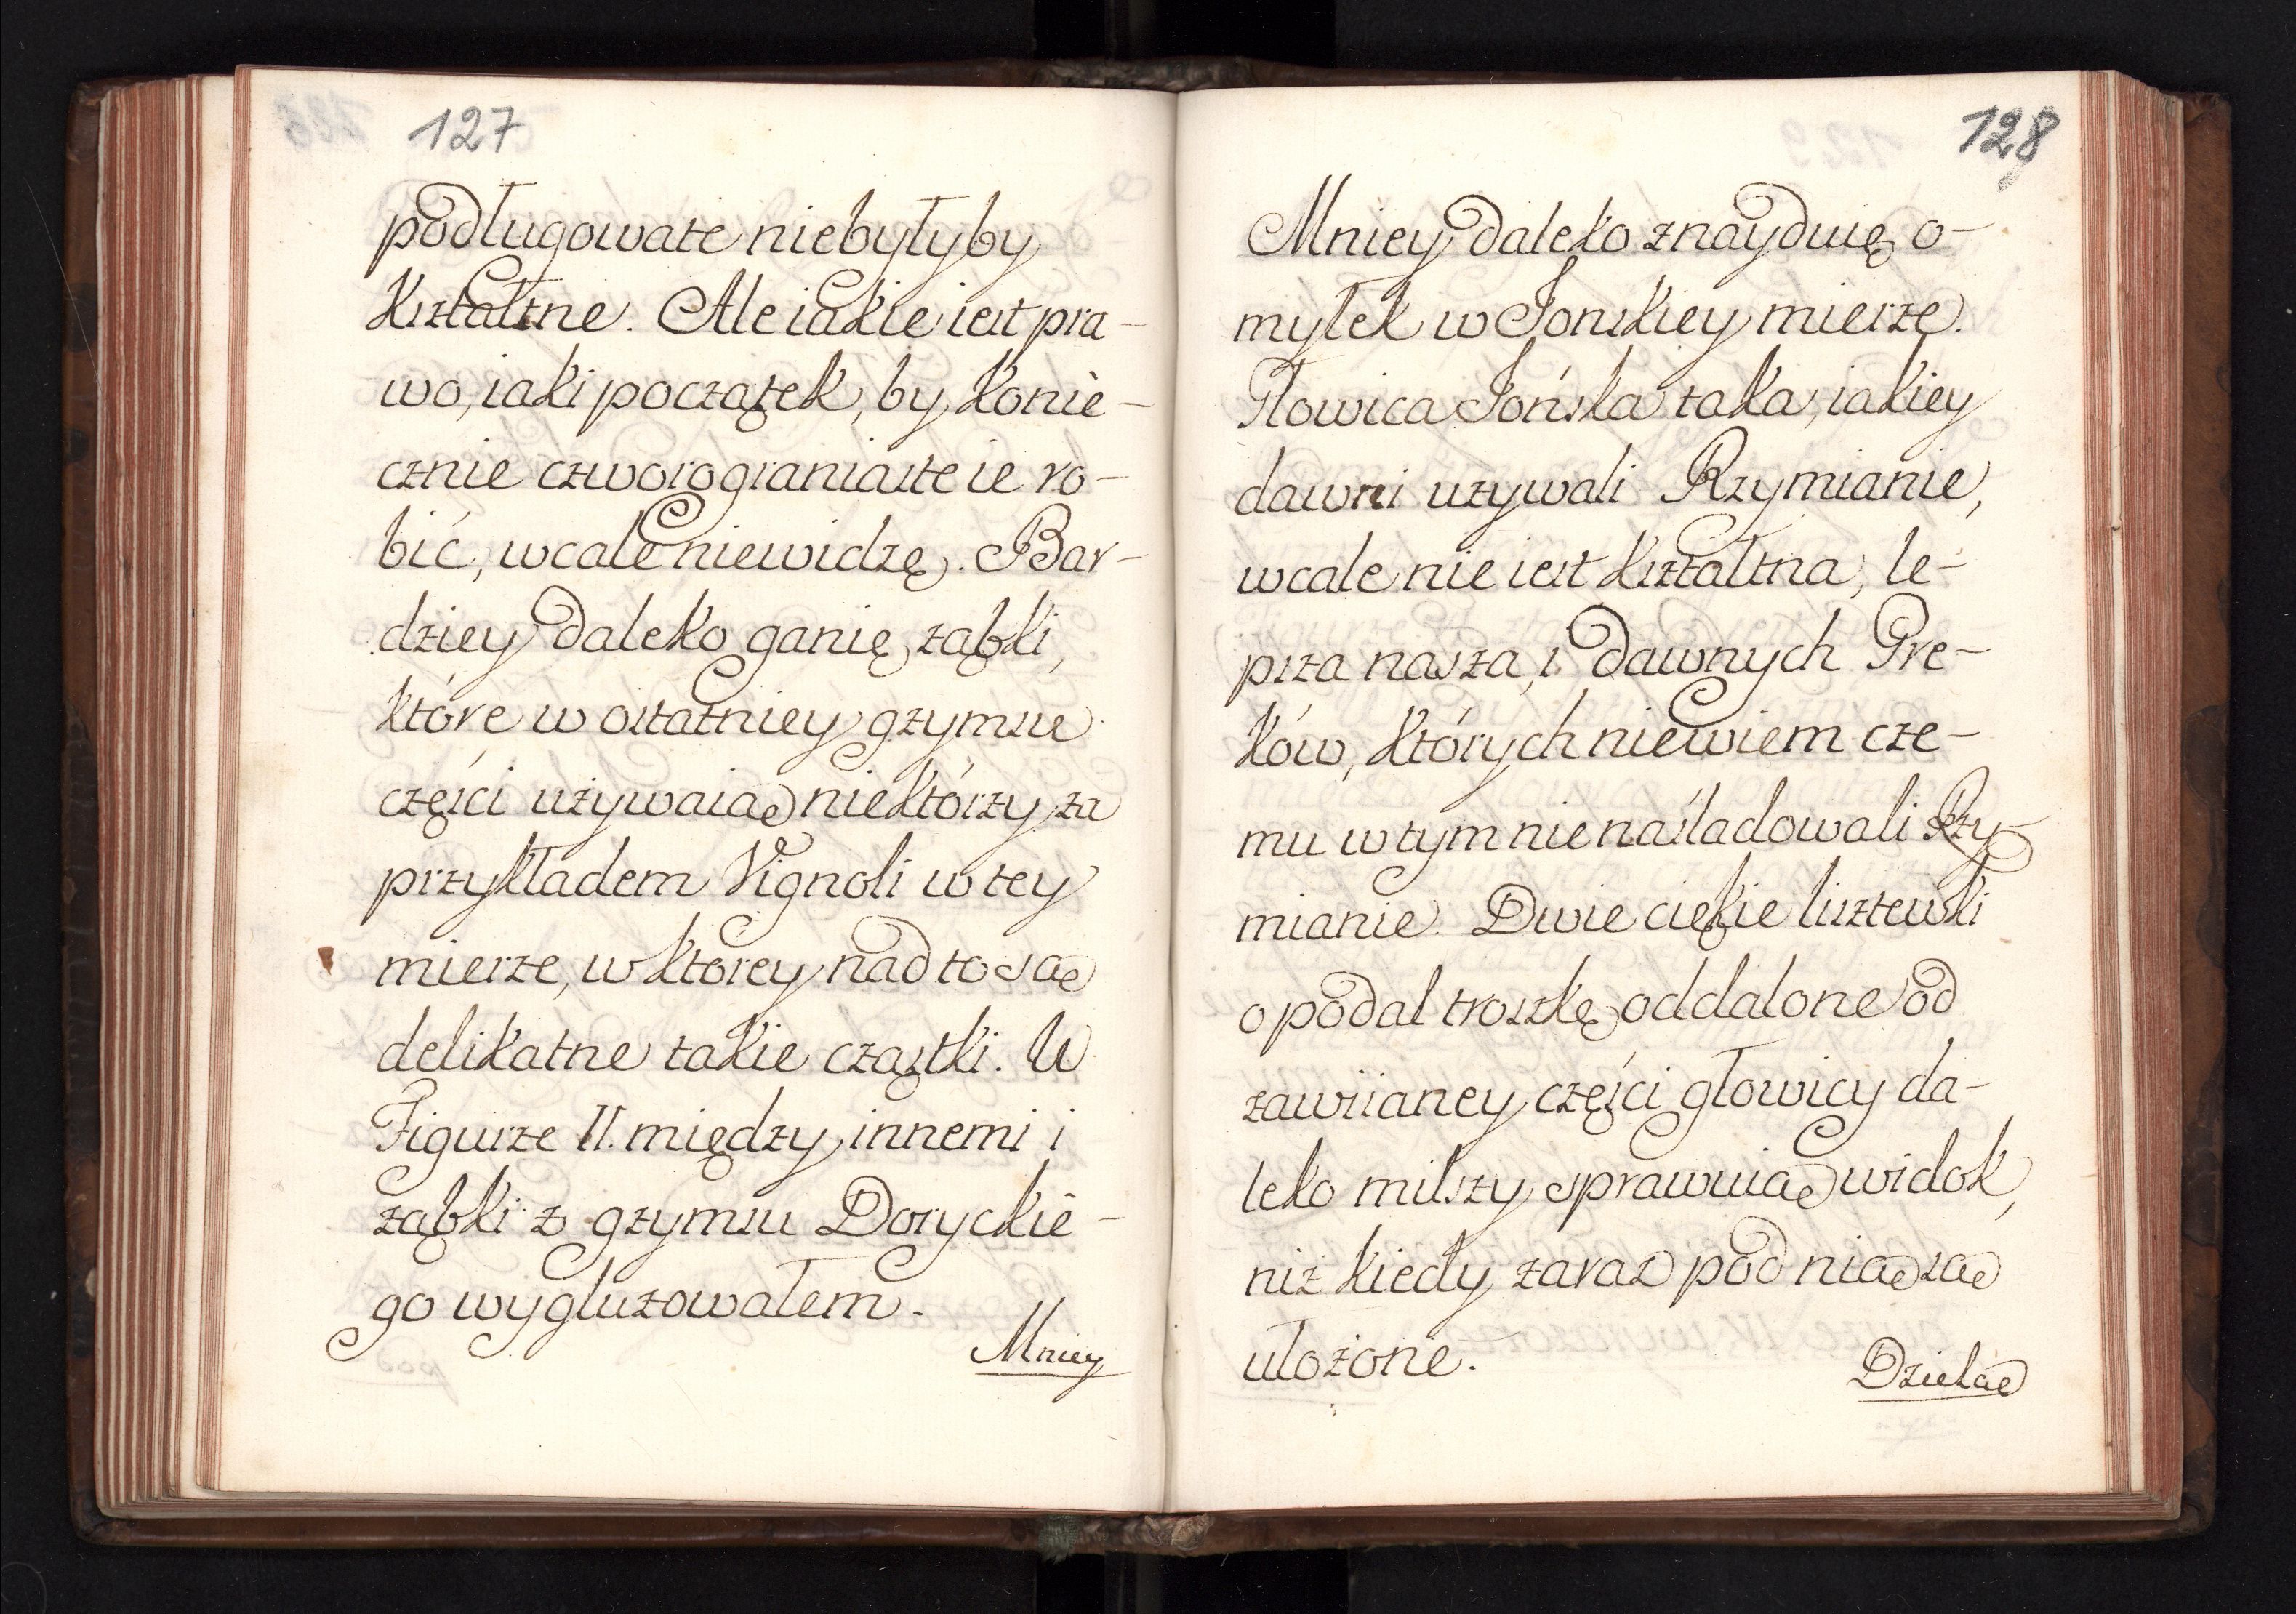 127
podługowate niebyłyby
kształtne. Ale iakie iest pra-
wo, iaki początek, by konie-
cznie czworograniaste ie ro-
bić, wcale niewidzę. Bar-
dziey daleko ganię ząbki,
które w ostatniey gzymsu
części używaią niektórzy za
przykładem Vignoli w tey
mierze, w którey nad to są
delikatne takie cząstki. W
Figurze II. między innemi i
ząbki z gzymsu Doryckie-
go wygluzowałem.
Mniey
128
Mniey daleko znayduię o-
myłek w Jonskiey mierze.
Głowica Jońska taka, iakiey
dawni używali Rzymianie,
wcale nie iest kształtna, le-
psza nasza, i dawnych Gre-
ków, których niewiem cze-
mu w tym nie naśladowali Rzy-
mianie. Dwie cięk̨ie lisztewki
opodal troszkę oddalone od
zawiianey części głowicy da-
leko milszy sprawuią widok,
niż kiedy zaraz pod nią są
ułożone.
Dzielą